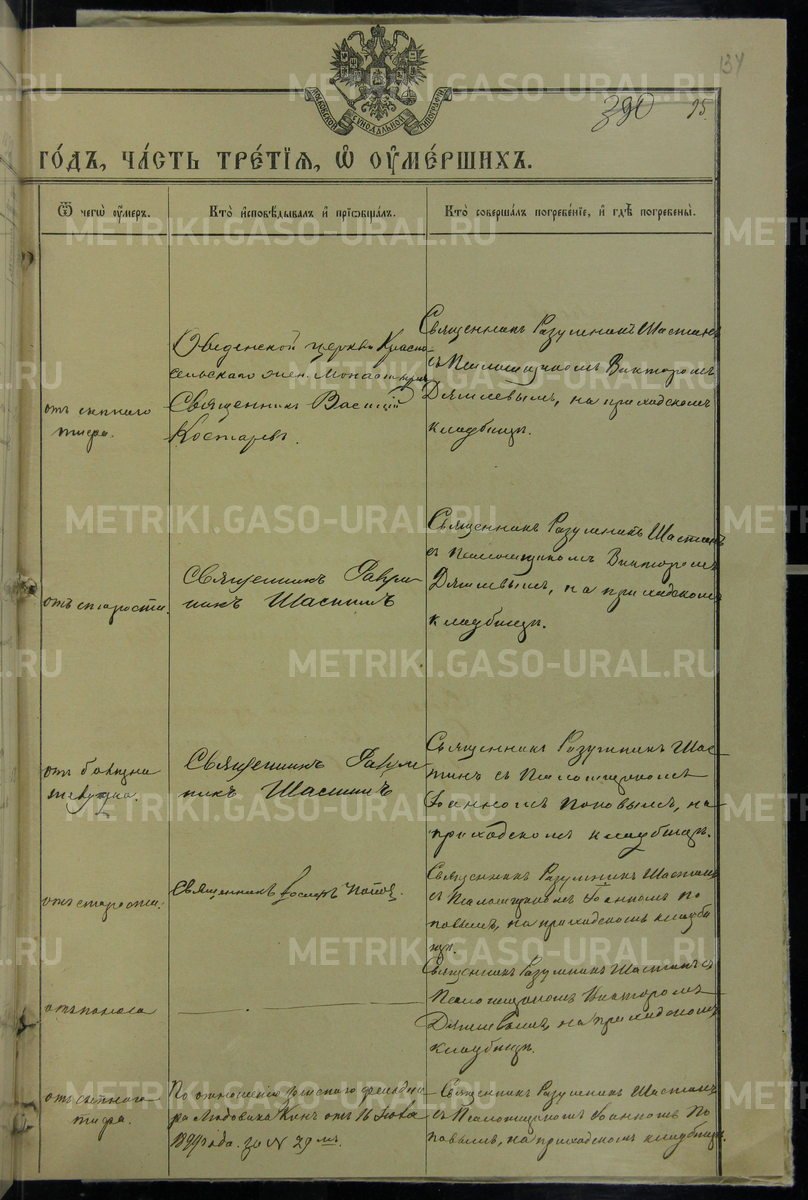 134
390 95.
МОСКОВСКОЙ СУНОДАЛЬНОЙ ТИПОГРАФІИ
ГО́ДЪ, ЧА́СТЬ ТРЕ́ТІѦ, Ѡ҆ ОУ҆МЕ́РШИХЪ.
Ѿ чегѡ̀ ᲂу҆́меръ.
Кто̀ и҆сповѣ́дывалъ и҆ прїѡбща́лъ.
Кто̀ соверша́лъ погребе́нїе, и҆ гдѣ̀ погребены̀.
отъ сыпного
тифа.
церкви Красно
сельскаго жен. Монастыря
Священникъ Василій
Костаревъ.
Священникъ Разумникъ Шастинъ
съ Псаломщикомъ Викторомъ
на приходскомъ
кладбищѣ.
отъ старости.
Священникъ Разум
никъ Шастинъ
Священникъ Разумникъ Шастинъ
съ Псаломщикомъ Викторомъ
на приходскомъ
кладбищѣ.
отъ болѣзни
желудка.
Священникъ Разум
никъ Шастинъ
Священникъ Разумникъ Шас
тинъ съ Псаломщикомъ
Іоанномъ Поповымъ, на
приходскомъ кладбищѣ.
отъ старости.
Священникъ Поповъ.
Священникъ Разумникъ Шастинъ
съ Псаломщикомъ Іоанномъ По
повымъ, на приходскомъ кладби
щѣ.
отъ поноса
Священникъ Разумникъ Шастинъ съ
Псаломщикомъ Викторомъ
на приходскомъ
кладбищѣ.
отъ сыпного
тифа.
По отношенію
отъ 16 Іюля
года за № 29
Священникъ Разумникъ Шастинъ
съ Псаломщикомъ Іоанномъ По
повымъ, на приходскомъ кладбищѣ.
METRIKI.GASO-URAL.RU